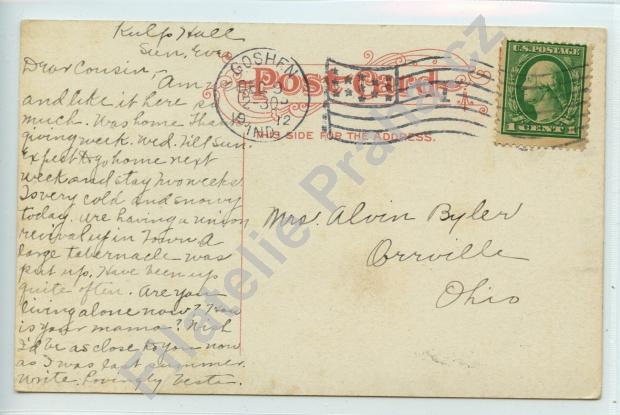 Kulp Hall
Sun. Eve
Dear Cousin,- Am
and like it here so
much. Was home Thanks
giving week. Wed. till Sun.
Expect to go home next
week and stay two weeks
Is very cold and snowy
today. are having a union
revival up in town. A
large tabernacle was
put up. Have been up
quite often. Are you
living alone now? How
is your mama? Wish
I'd be as close to you now
as I was last summer.
Write. Lovingly Vesta.
GOSHEN
DEC 9
30P
1912
IND.
Post Card
THIS SIDE FOR THE ADDRESS.
U.S. POSTAGE
1 CENT 1
Mrs. Alvin Byler
Orrville
Ohio
Filatelie Praha.cz